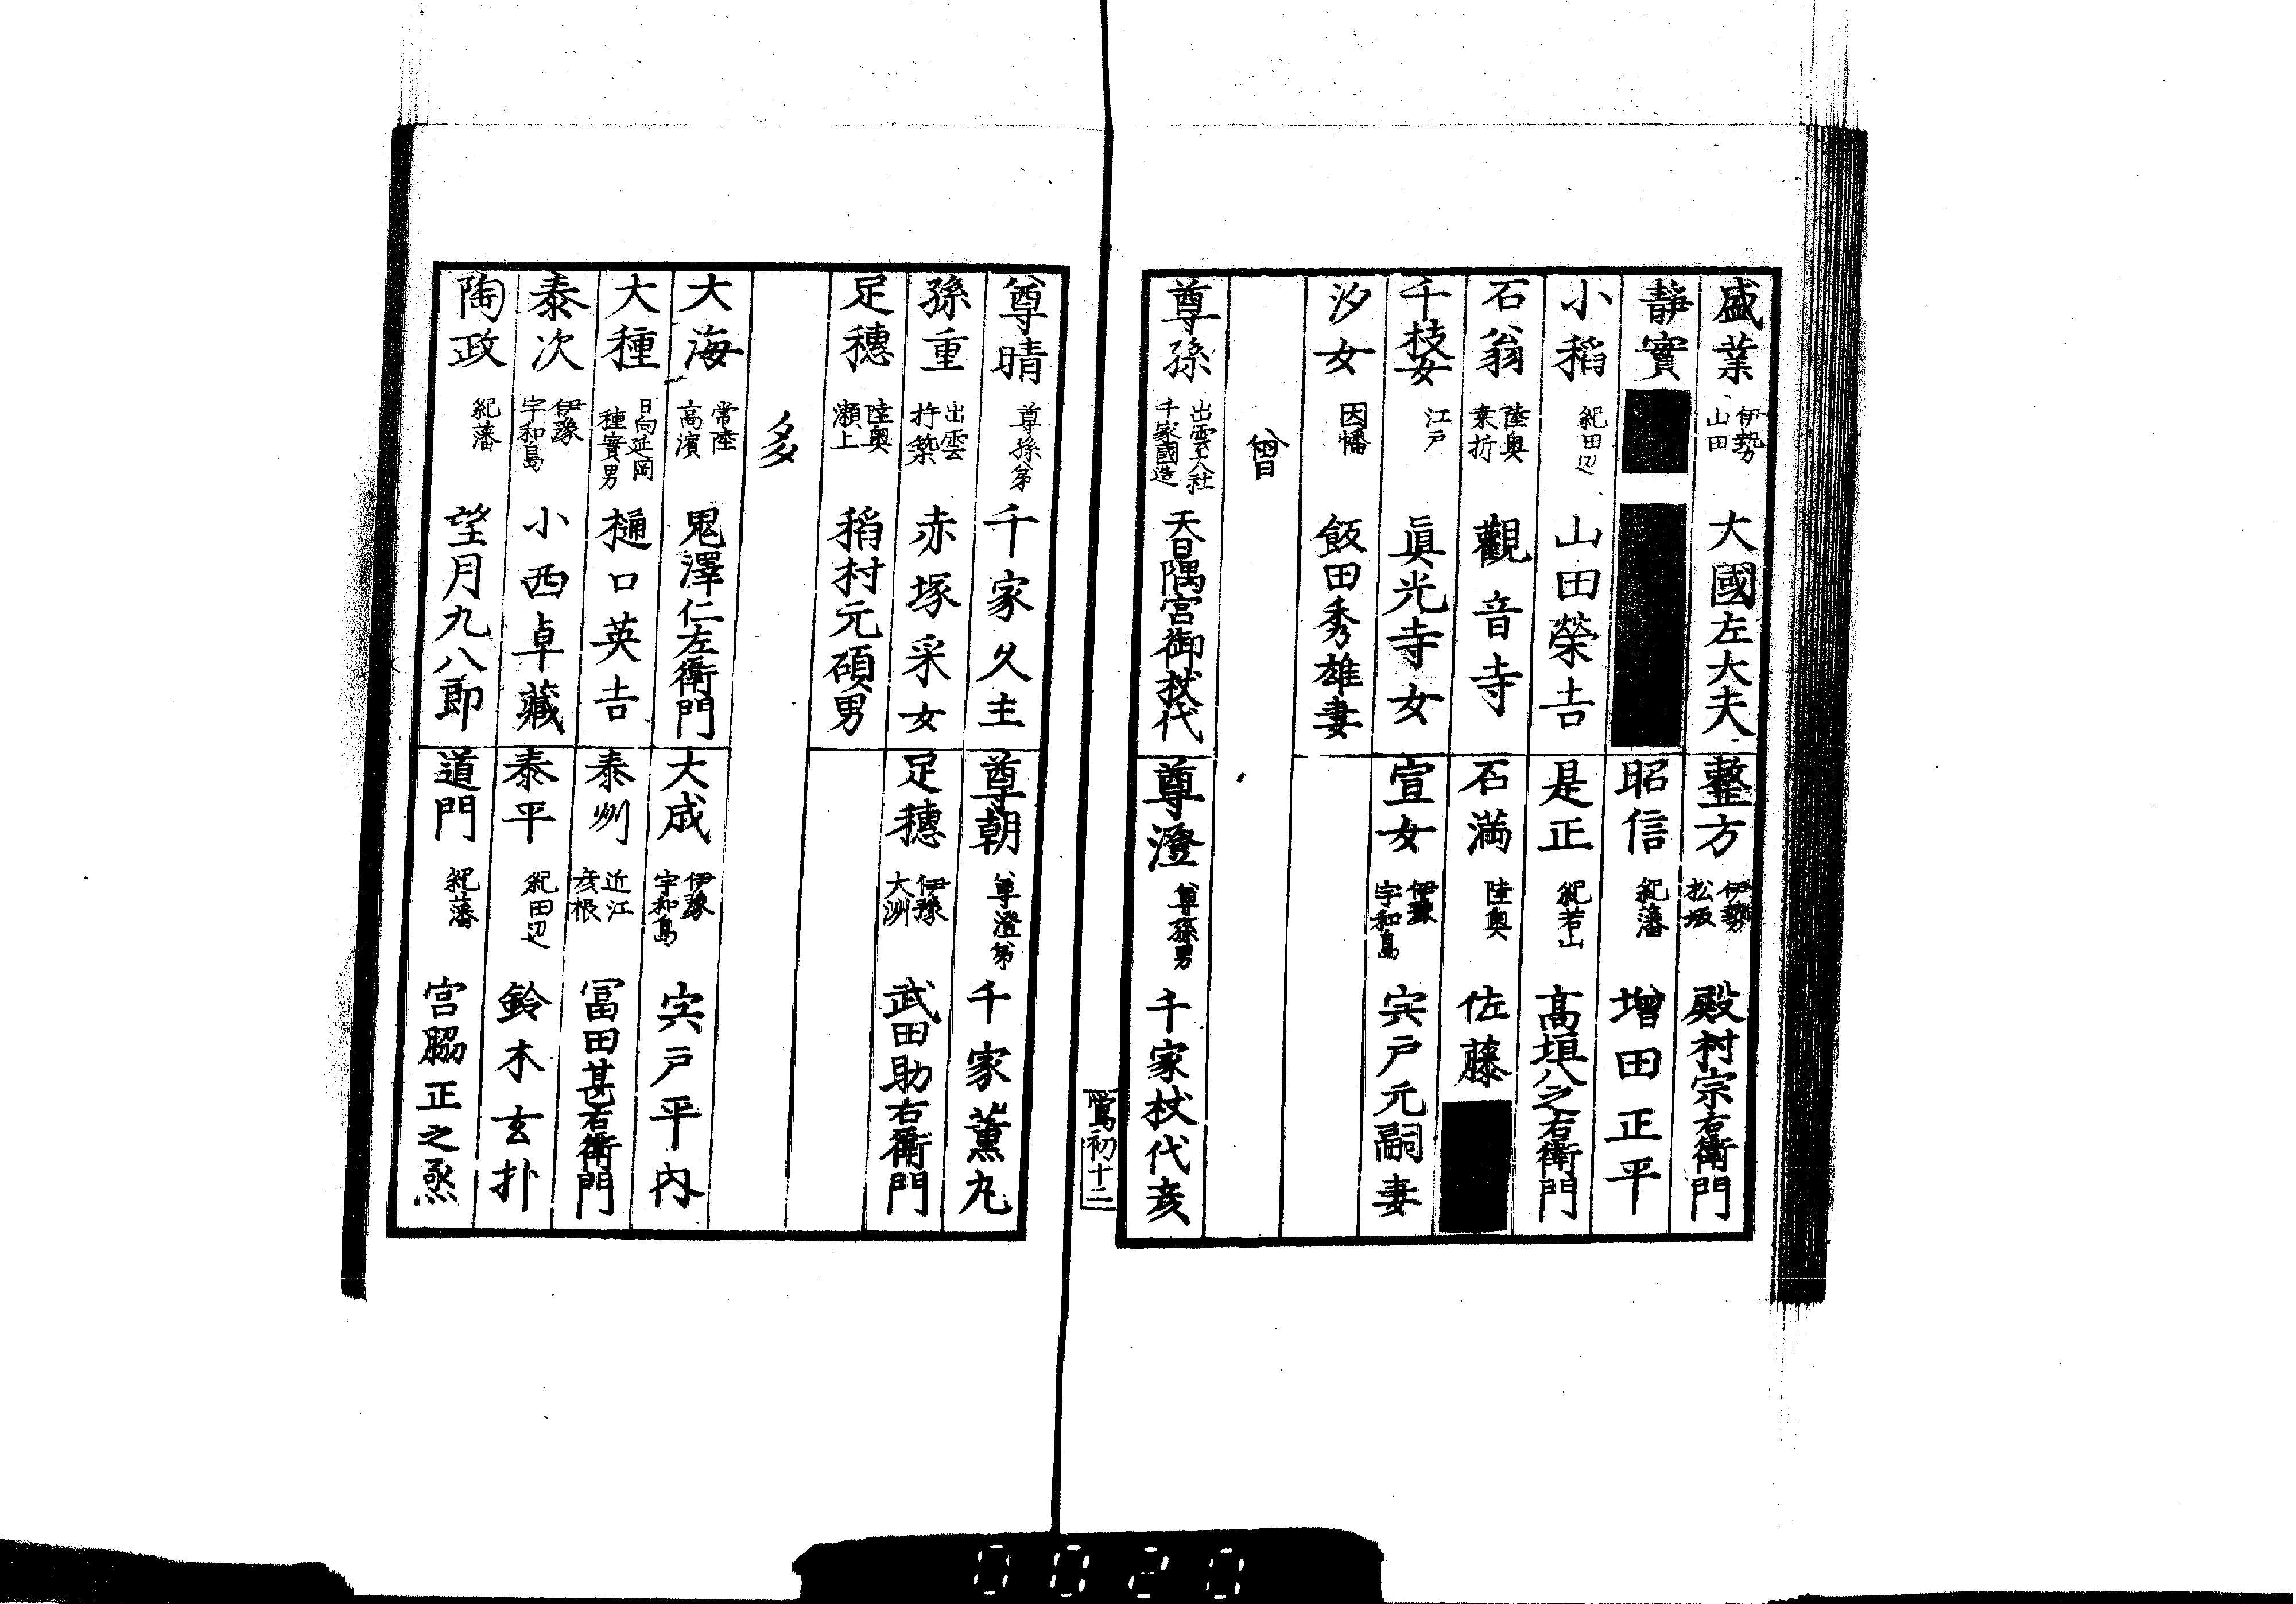 盛業 伊勢山田 大國左大夫
整方 伊勢松坂 殿村宗右衛門
静實
昭信 紀藩 増田正平
小稻 紀田辺 山田榮吉
是正 紀若山 髙垣八之右衛門
石翁 陸奥桒折 觀音寺
石満 陸奥 佐藤
千枝女 江戸 眞光寺女
宣女 伊豫宇和島 宍戸元嗣妻
汐女 因幡 飯田秀雄妻
曾
尊孫 出雲大社千家國造 天日隅宮御杖代
尊澄 尊孫男 千家杖代彦
鴬初十二
尊晴 尊孫弟 千家久主
尊朝 尊澄弟 千家薫丸
孫重 出雲杵築 赤塚采女
足穗 伊豫大洲 武田助右衛門
足穗 陸奥瀬上 稻村元碩男
多
大海 常陸高濱 鬼澤仁左衛門
大成 伊豫宇和島 宍戸平内
大種 日向延岡種實男 樋口英吉
泰州 近江彦根 冨田甚右衛門
泰次 伊豫宇和島 小西卓藏
泰平 紀田辺 鈴木玄朴
陶政 紀藩 望月九八郎
道門 紀藩 宮脇正之烝
0020